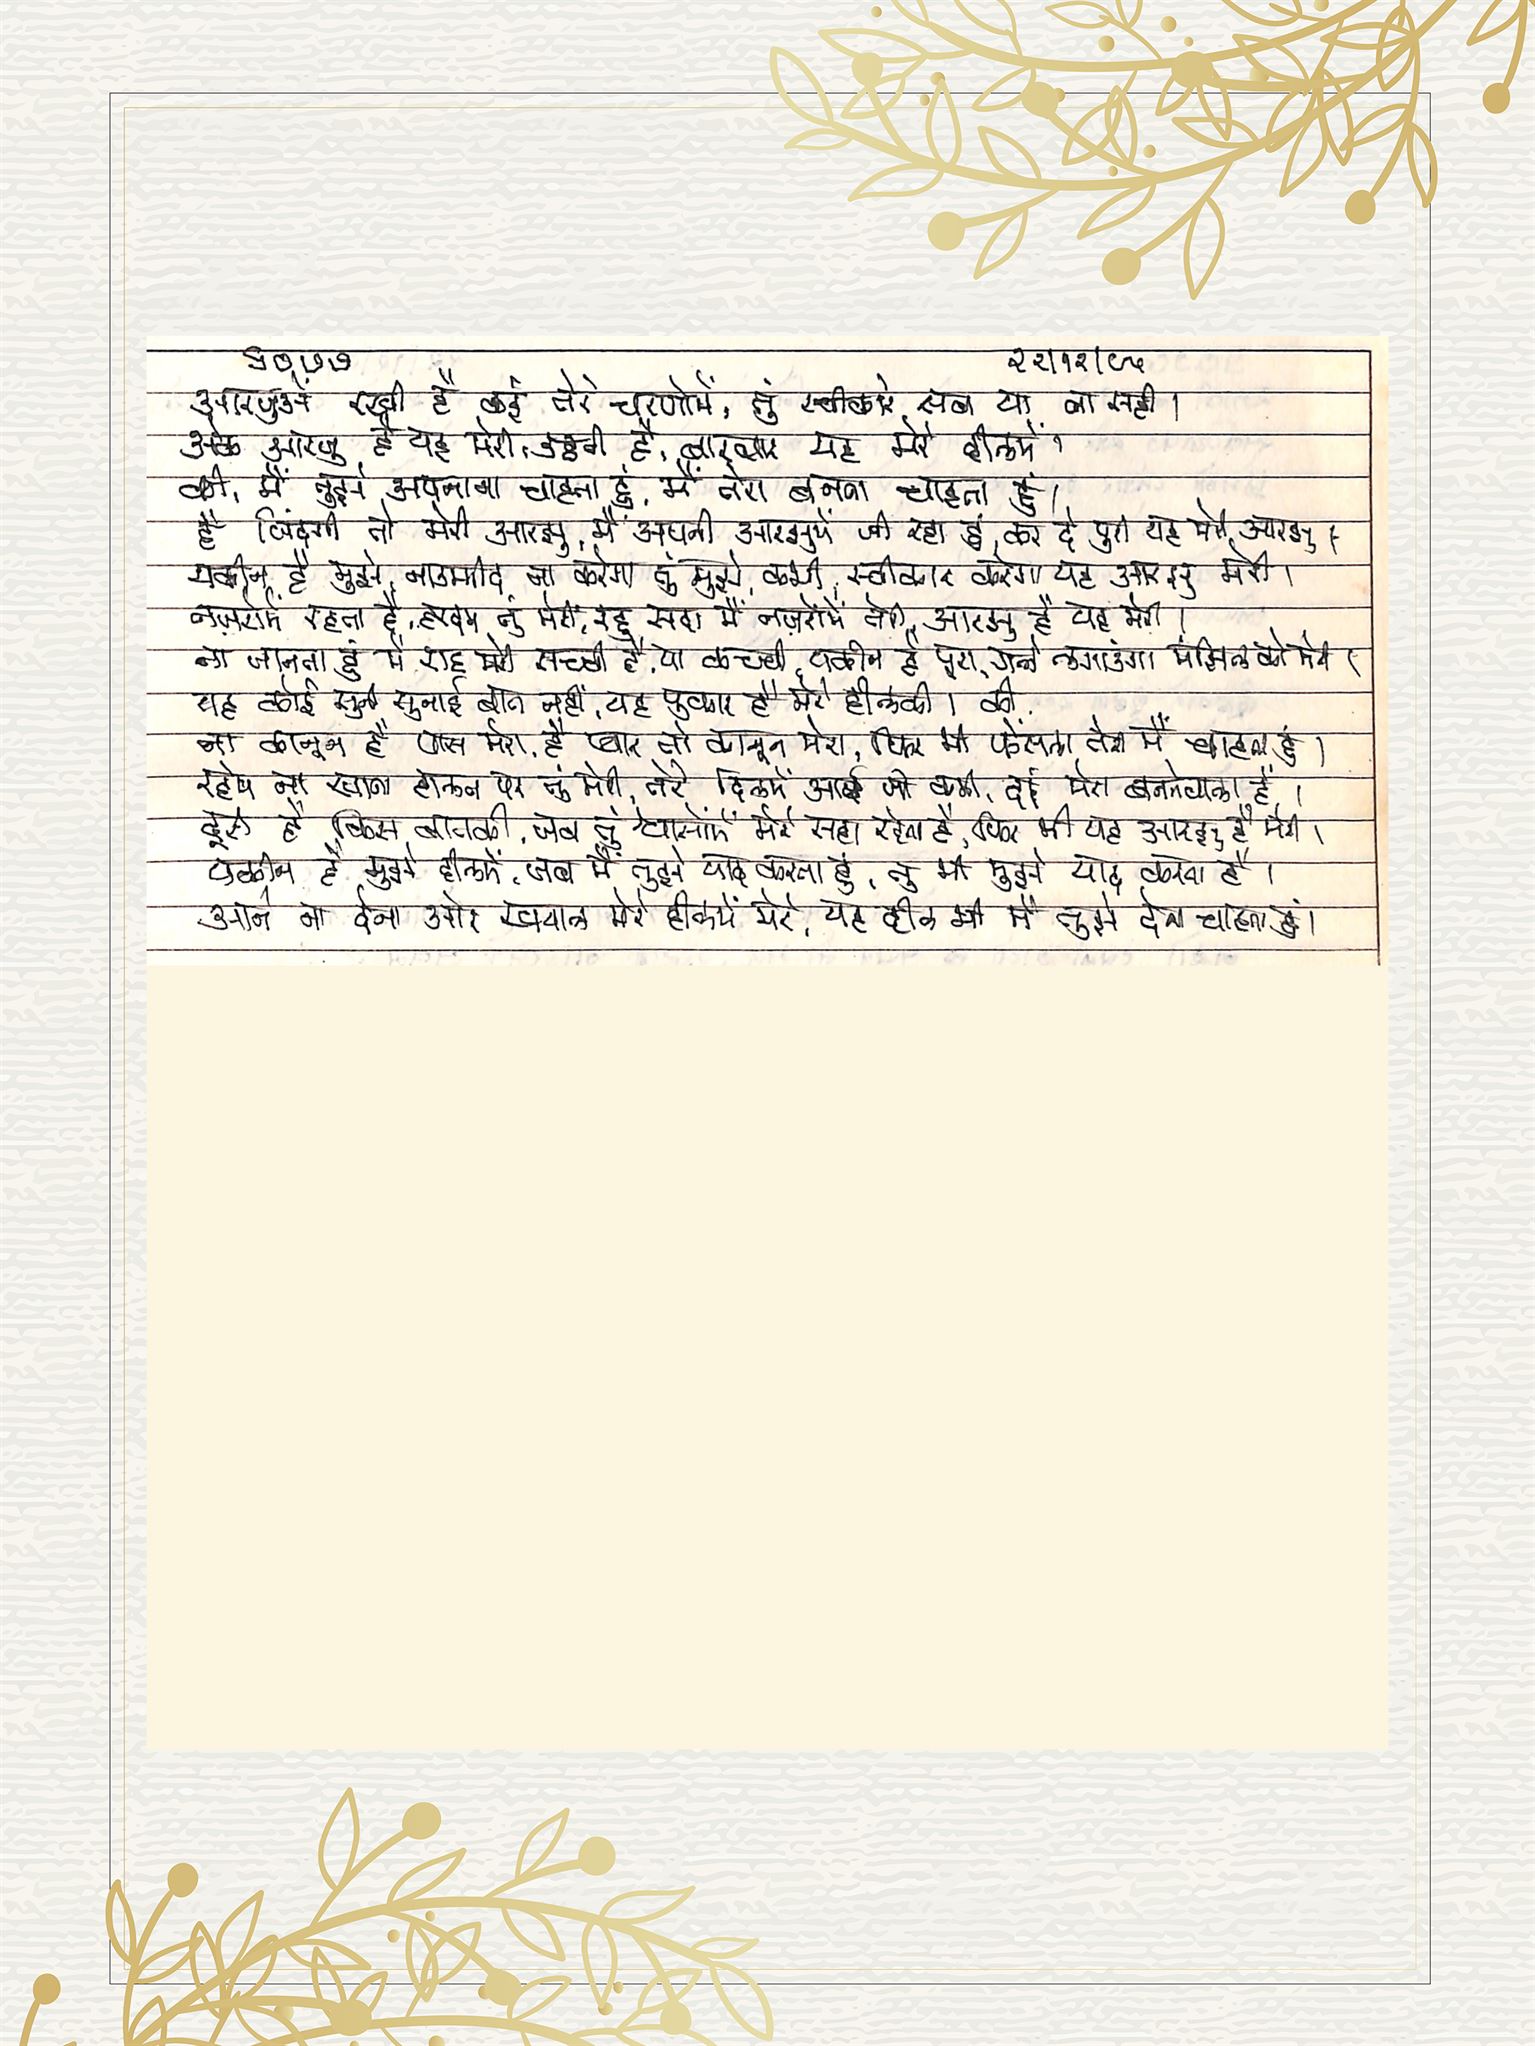 ૬૭૭૭ ૨૨/૧૨/૮૫
आरजुएं रखी है कई तेरे चरणोमें, तुं स्वीकारे सब या ना सही ।
अेक आरजु है यह मेरी, उठती है, बारबार यह मेरे दीलमें ।
की, मैं तुझे अपनाना चाहता हुं, मैं तेरा बनना चाहता हुं ।
है जिंदगी तो मेरी आरझु, मैं अपनी आरझुमें जी रहा हुं, कर दे पुरी यह मेरी आरझु ।
यकीन है मुझे, नाउम्मीद ना करेगा तुं मुझे कभी, स्वीकार करेगा यह आरझु मेरी ।
नज़रोमें रहता है, हरदम तुं मेरी, रहु सदा मैं नज़रोमें तेरी, आरझु है यह मेरी ।
ना जानता हुं मैं राह मेरी सच्ची है, या कच्ची, यकीन है पुरा, गले लगाउंगा मंझिल को मेरी ।
यह कोई सुनी सुनाई बात नहीं, यह पुकार है मेरे दीलकी । की
ना कानून है पास मेरा, है प्यार तो कानून मेरा, फिर भी फेंसला तेरा मैं चाहता हुं ।
रहेम ना खाना हालत पर तुं मेरी, तेरे दिलमें आई जो कभी, दर्द मेरा बननेवाला है ।
दूरी है किस बातकी, जब तुं श्वासोंमें मेरे सदा रहेता है, फिर भी यह आरझु है मेरी ।
यकीन है मुझे दीलमें, जब मैं तुझे याद करता हुं, तु भी मुझे याद करता है ।
आने ना देना और ख्याल मेरे दीलमें मेरे, यह दील भी मैं तुझे देना चाहता हुं ।